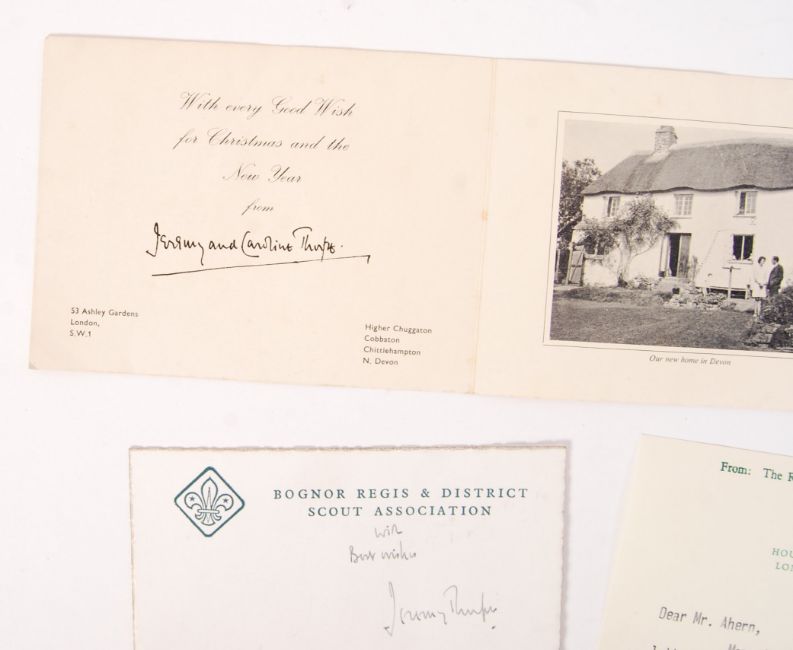 With every Good Wish
for Christmas and the
New Year
from
Jeremy and Caroline Thorpe.
53 Ashley Gardens
London,
S.W.1
Higher Chuggaton
Cobbaton
Chittlehampton
N. Devon
Our new home in Devon
BOGNOR REGIS & DISTRICT
SCOUT ASSOCIATION
with
Best wishes
Jeremy Thorpe
From: The R
HOU
LON
Dear Mr. Ahern,